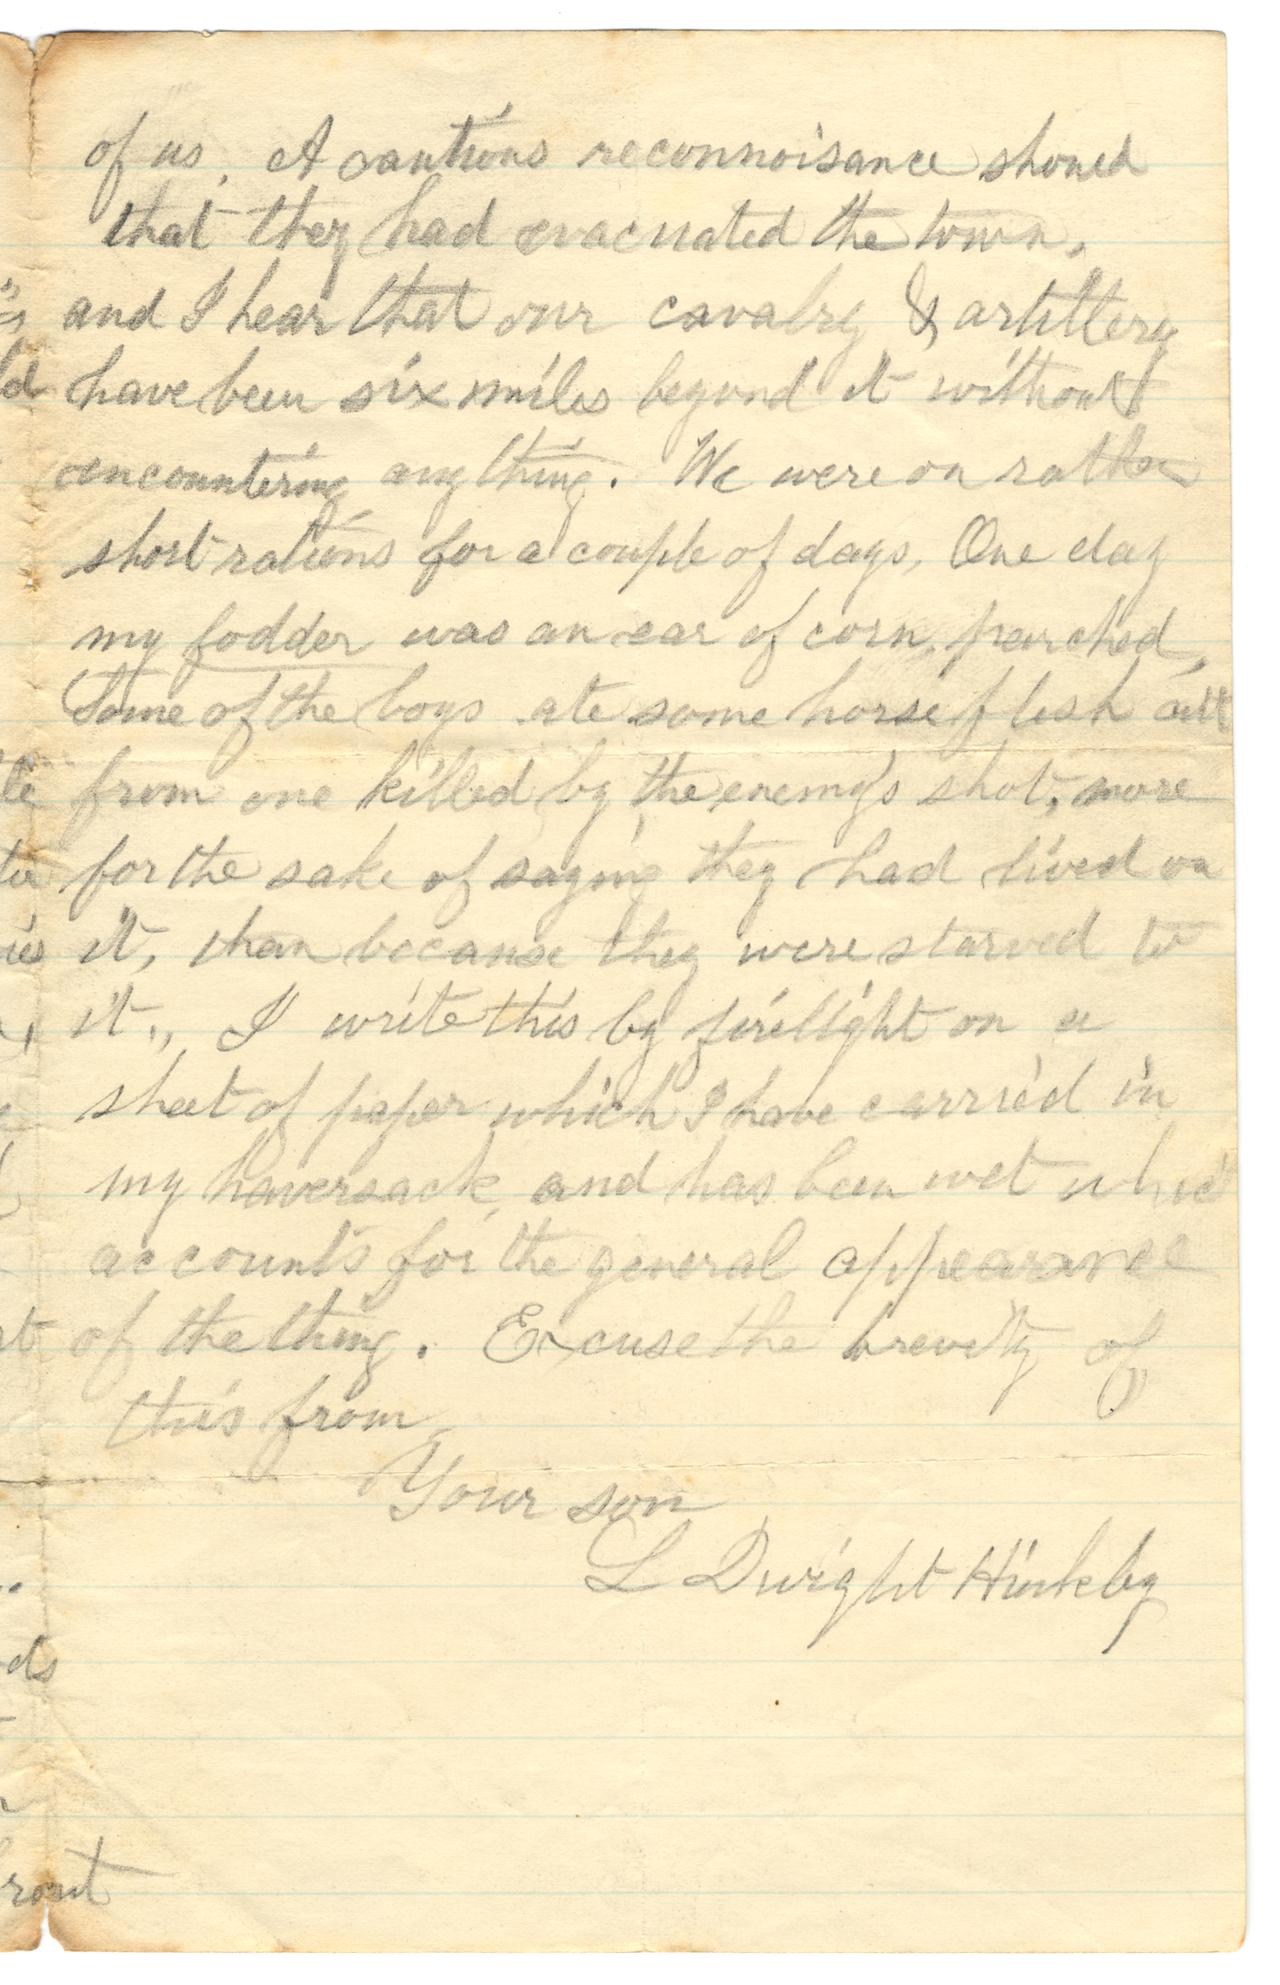 of us. A cautious reconnoisance showed
that they had evacuated the town,
and I hear that our cavalry & artillery
have been six miles beyond it without
encountering any thing. We were on rather
short rations for a couple of days, One day
my fodder was an ear of corn, parched,
Some of the boys ate some horse flesh cut
from one killed by the enemy's shot, more
for the sake of saying they had lived on
it, than because they were starved to
it., I write this by firelight on a
sheet of paper which I have carried in
my haversack, and has been wet which
accounts for the general appearance
of the thing. Excuse the brevity of
this from
Your son
L Dwight Hinkley
ds
front